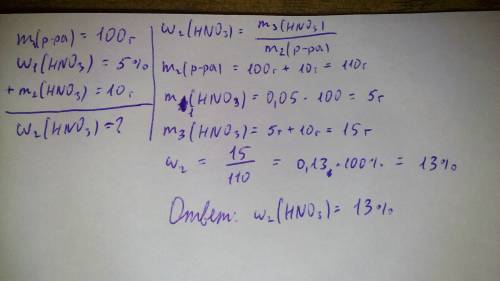 m1(р-ра) = 100г
w1(HNO3) = 5%
+ m2(HNO3) = 10г
w2(HNO3) = ?
w2(HNO3) = m3(HNO3) / m2(р-ра)
m2(р-ра) = 100г + 10г = 110г
m1(HNO3) = 0,05 · 100 = 5г
m3(HNO3) = 5г + 10г = 15г
w2 = 15 / 110 = 0,13 · 100% = 13%
Ответ: w2(HNO3) = 13%